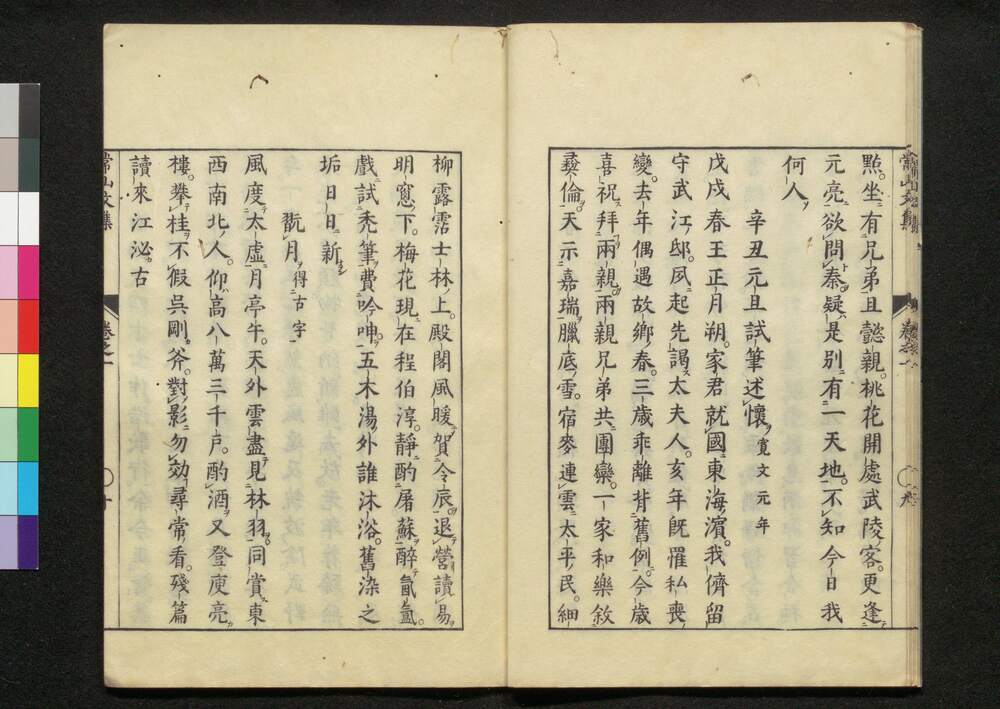 點坐有兄弟且懿親桃花開處武陵客更逢
元亮欲問秦疑是別有一天地不知今日我
何人
辛丑元旦試筆述懷 寬文元年
戊戌春王正月朔家君就國東海濱我儕留
守武江邸夙起先謁太夫人亥年既罹私喪
變去年偶遇故鄉春三歲乖離背舊例今歲
喜祝拜兩親兩親兄弟共團欒一家和樂敘
彜倫天示嘉瑞臘底雪宿麥連雲太平民細
柳露霑士林上殿閣風暖賀令辰退營讀易
明窓下梅花現在程伯淳靜酌屠蘇醉氤氳
戲試禿筆費吟呻五木湯外誰沐浴舊染之
垢日日新
翫月 得古字
風度太虛月亭午天外雲盡見林羽同賞東
西南北人仰高八萬三千戶酌酒又登庾亮
樓攀桂不假吳剛斧對影勿効尋常看殘篇
讀來江泌古
常山文集
卷之一
十